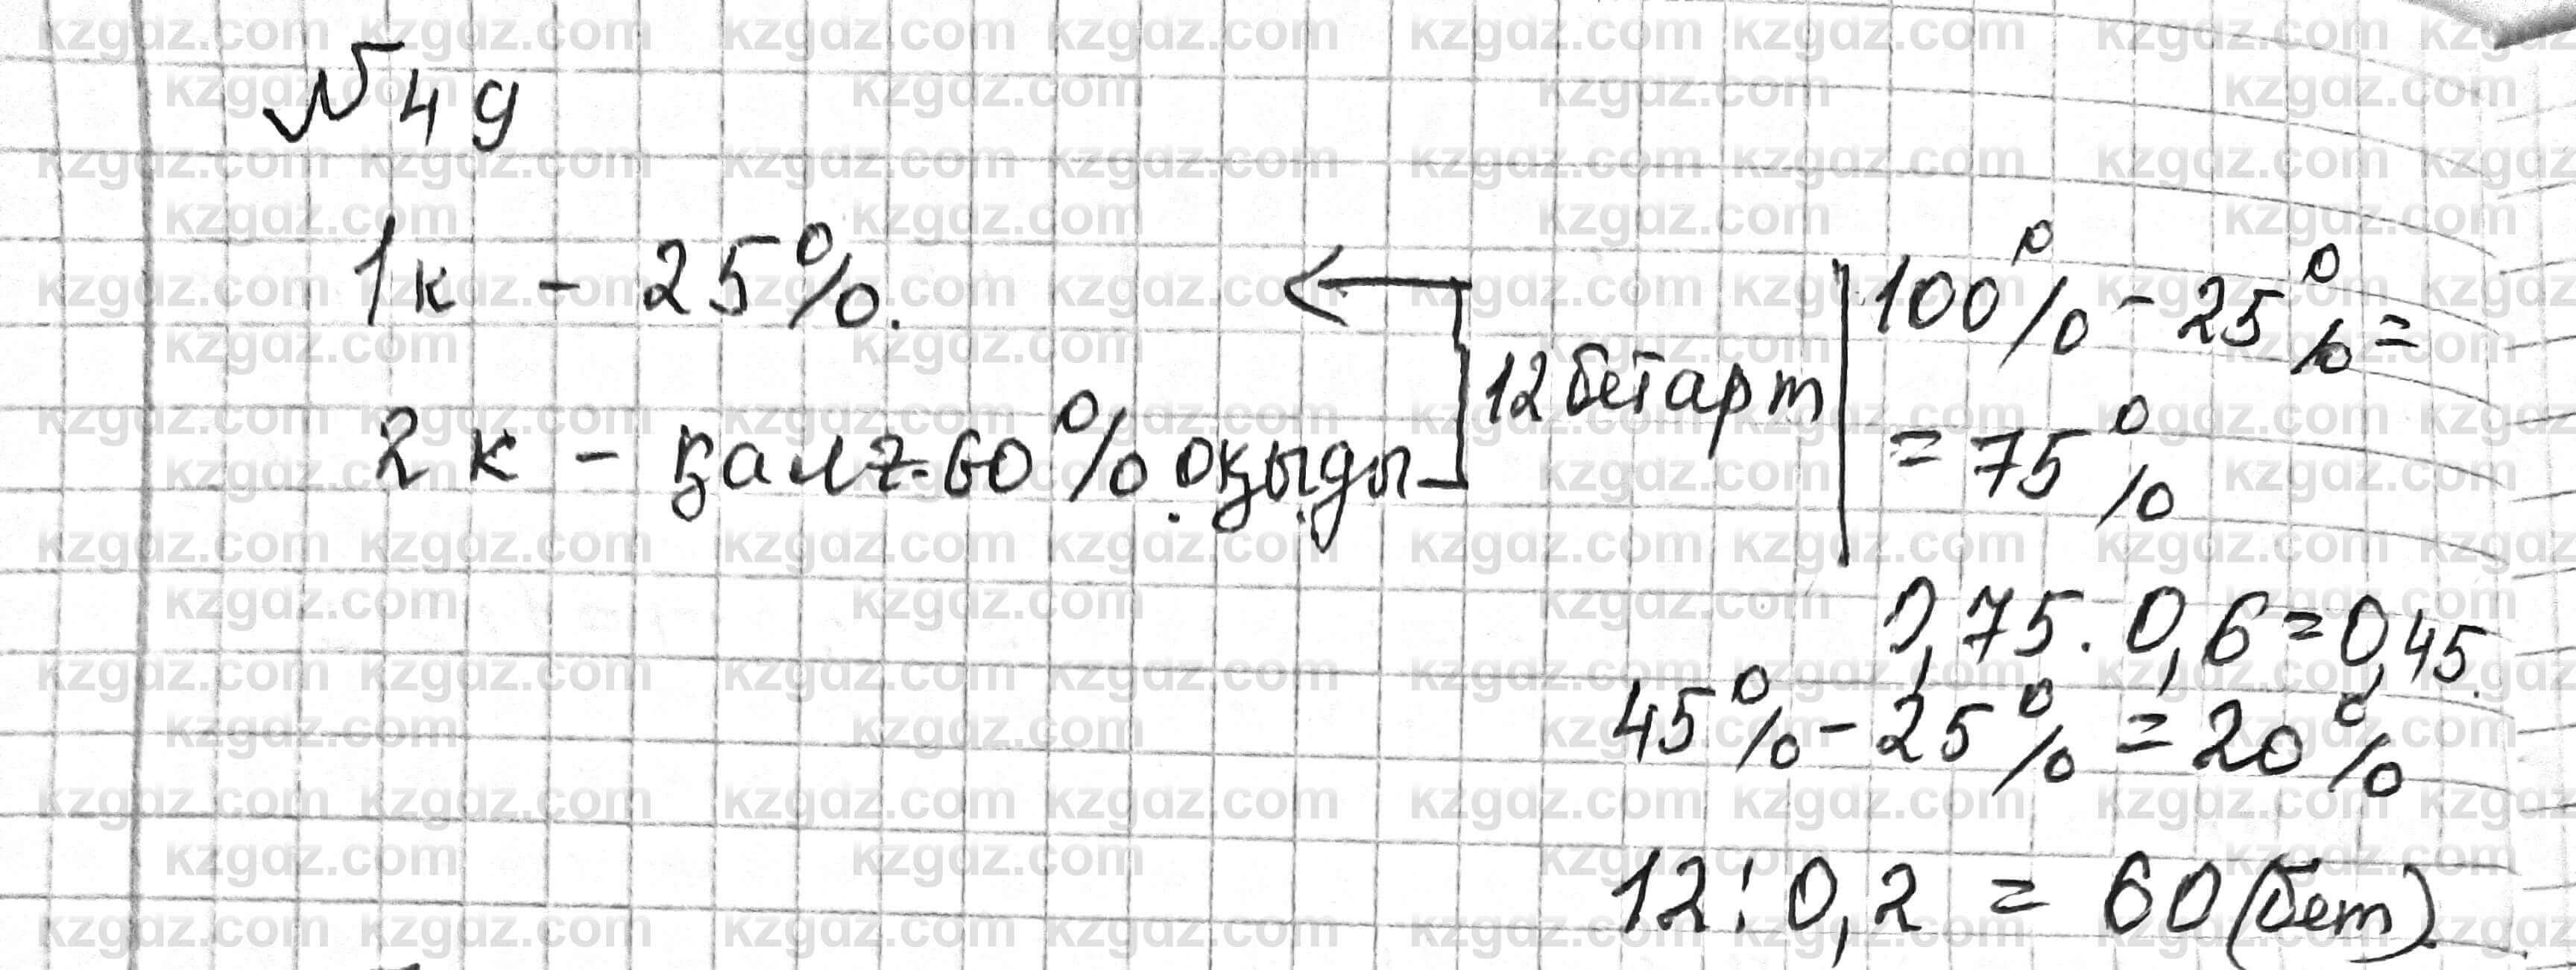 №49
1к - 25%.
2к - қалғ. 60% оқыды
12 бет арт
100% - 25% =
= 75%
0,75 . 0,6 = 0,45.
45% - 25% = 20%
12 : 0,2 = 60 (бет).
kzgdz.com